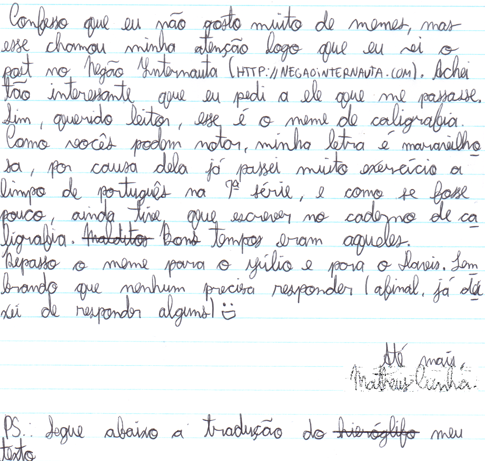 Confesso que eu não gosto muito de memes, mas
esse chamou minha atenção logo que eu vi o
post no Negão Internauta (HTTP://NEGAOINTERNAUTA.COM). Achei
tão interessante que eu pedi a ele que me passasse.
Sim, querido leitor, esse é o meme de caligrafia.
Como vocês podem notar, minha letra é maravilho
sa, por causa dela já passei muito exercício a
limpo de português na 7ª série, e como se fosse
pouco, ainda tive que escrever no caderno de ca
ligrafia. Malditos Bons tempos eram aqueles.
Repasso o meme para o Júlio e para o Clovis. Lem
brando que nenhum precisa responder (afinal, já dei
xei de responder alguns) :)
Até mais,
Matheus Cunha.
PS.: Segue abaixo a tradução do hieróglifo meu
texto